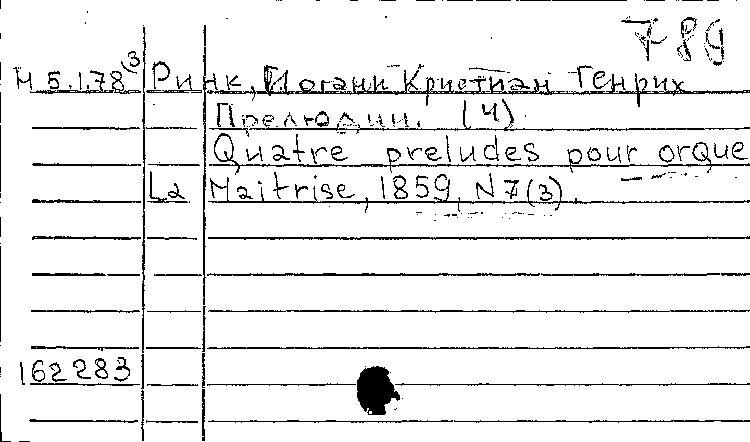 789
М 5.1.78(3) Ринк, Иоганн Кристиан Генрих
Прелюдии. (4)
Quatre preludes pour orque
La Maitrise, 1859, N7(3).
162283